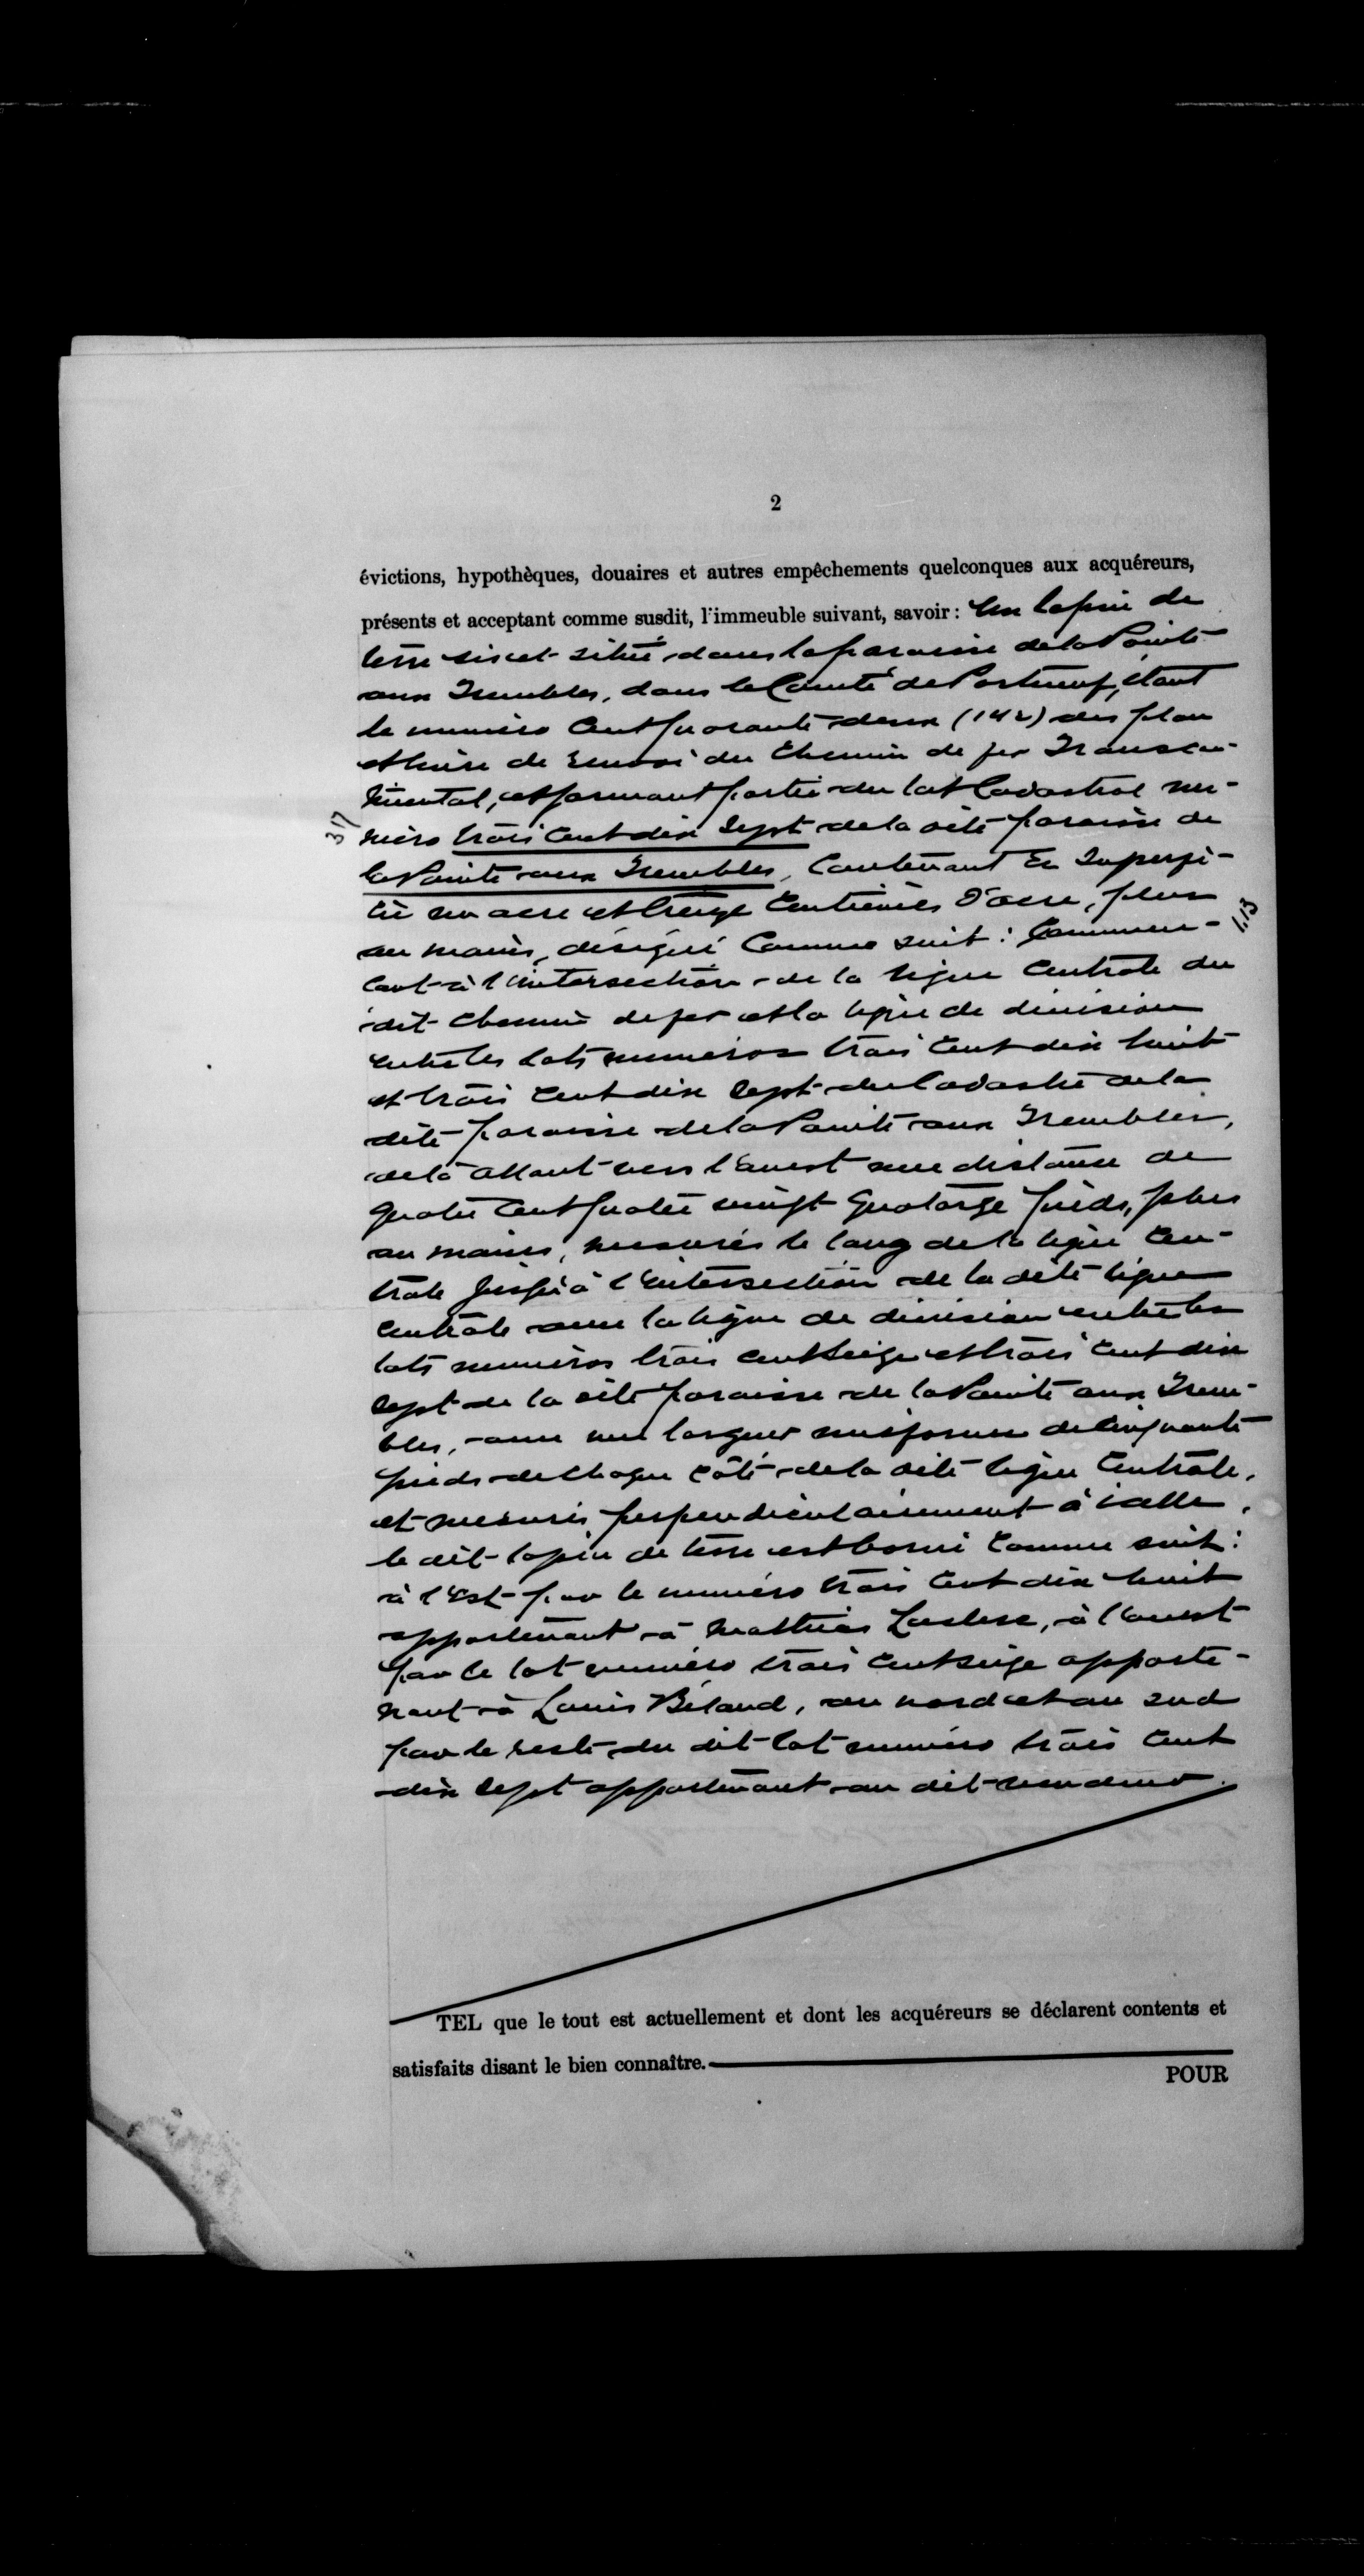 2
évictions, hypothèques, douaires et autres empêchements quelconques aux acquéreurs,
présents et acceptant comme susdit, l'immeuble suivant, savoir : Un lopin de
terre sis et situé dans la paroisse de la Pointe
aux Trembles, dans le Comté de Portneuf, étant
le numéro cent quarante deux (142) des plan
et livre de renvoi du Chemin de fer Transcon-
tinental, et formant partie du lot Cadastral nu-
317
méro trois cent dix sept de la dite paroisse de
la Pointe aux Trembles, Contenant en Superfi-
cie un acre et treize Centièmes d'acre, plus
1.13
ou moins, désigné Comme suit : Commen-
cant à l'intersection de la ligne Centrale du
dit Chemin de fer et la ligne de division
entre les lots numéros trois cent dix huit
et trois cent dix sept du Cadastre de la
dite paroisse de la Pointe aux Trembles,
de là allant vers l'ouest une distance de
quatre cent quatre vingt quatorze pieds, plus
ou moins, mesurés le long de la ligne Cen-
trale jusqu'à l'intersection de la dite ligne
Centrale avec la ligne de division entre les
lots numéros trois cent seize et trois cent dix
sept de la dite paroisse de la Pointe aux Trem-
bles, avec une largeur uniforme de cinquante
pieds de chaque côté de la dite ligne Centrale,
et mesurés perpendiculairement à icelle,
le dit lopin de terre est borné Comme suit :
à l'est par le numéro trois cent dix huit
appartenant à Mathias Larkese, à l'ouest
par le lot numéro trois cent seize apparte-
nant à Louis Béland, au nord et au sud
par le reste du dit lot numéro trois cent
dix sept appartenant au dit vendeur.
TEL que le tout est actuellement et dont les acquéreurs se déclarent contents et
satisfaits disant le bien connaître.
POUR